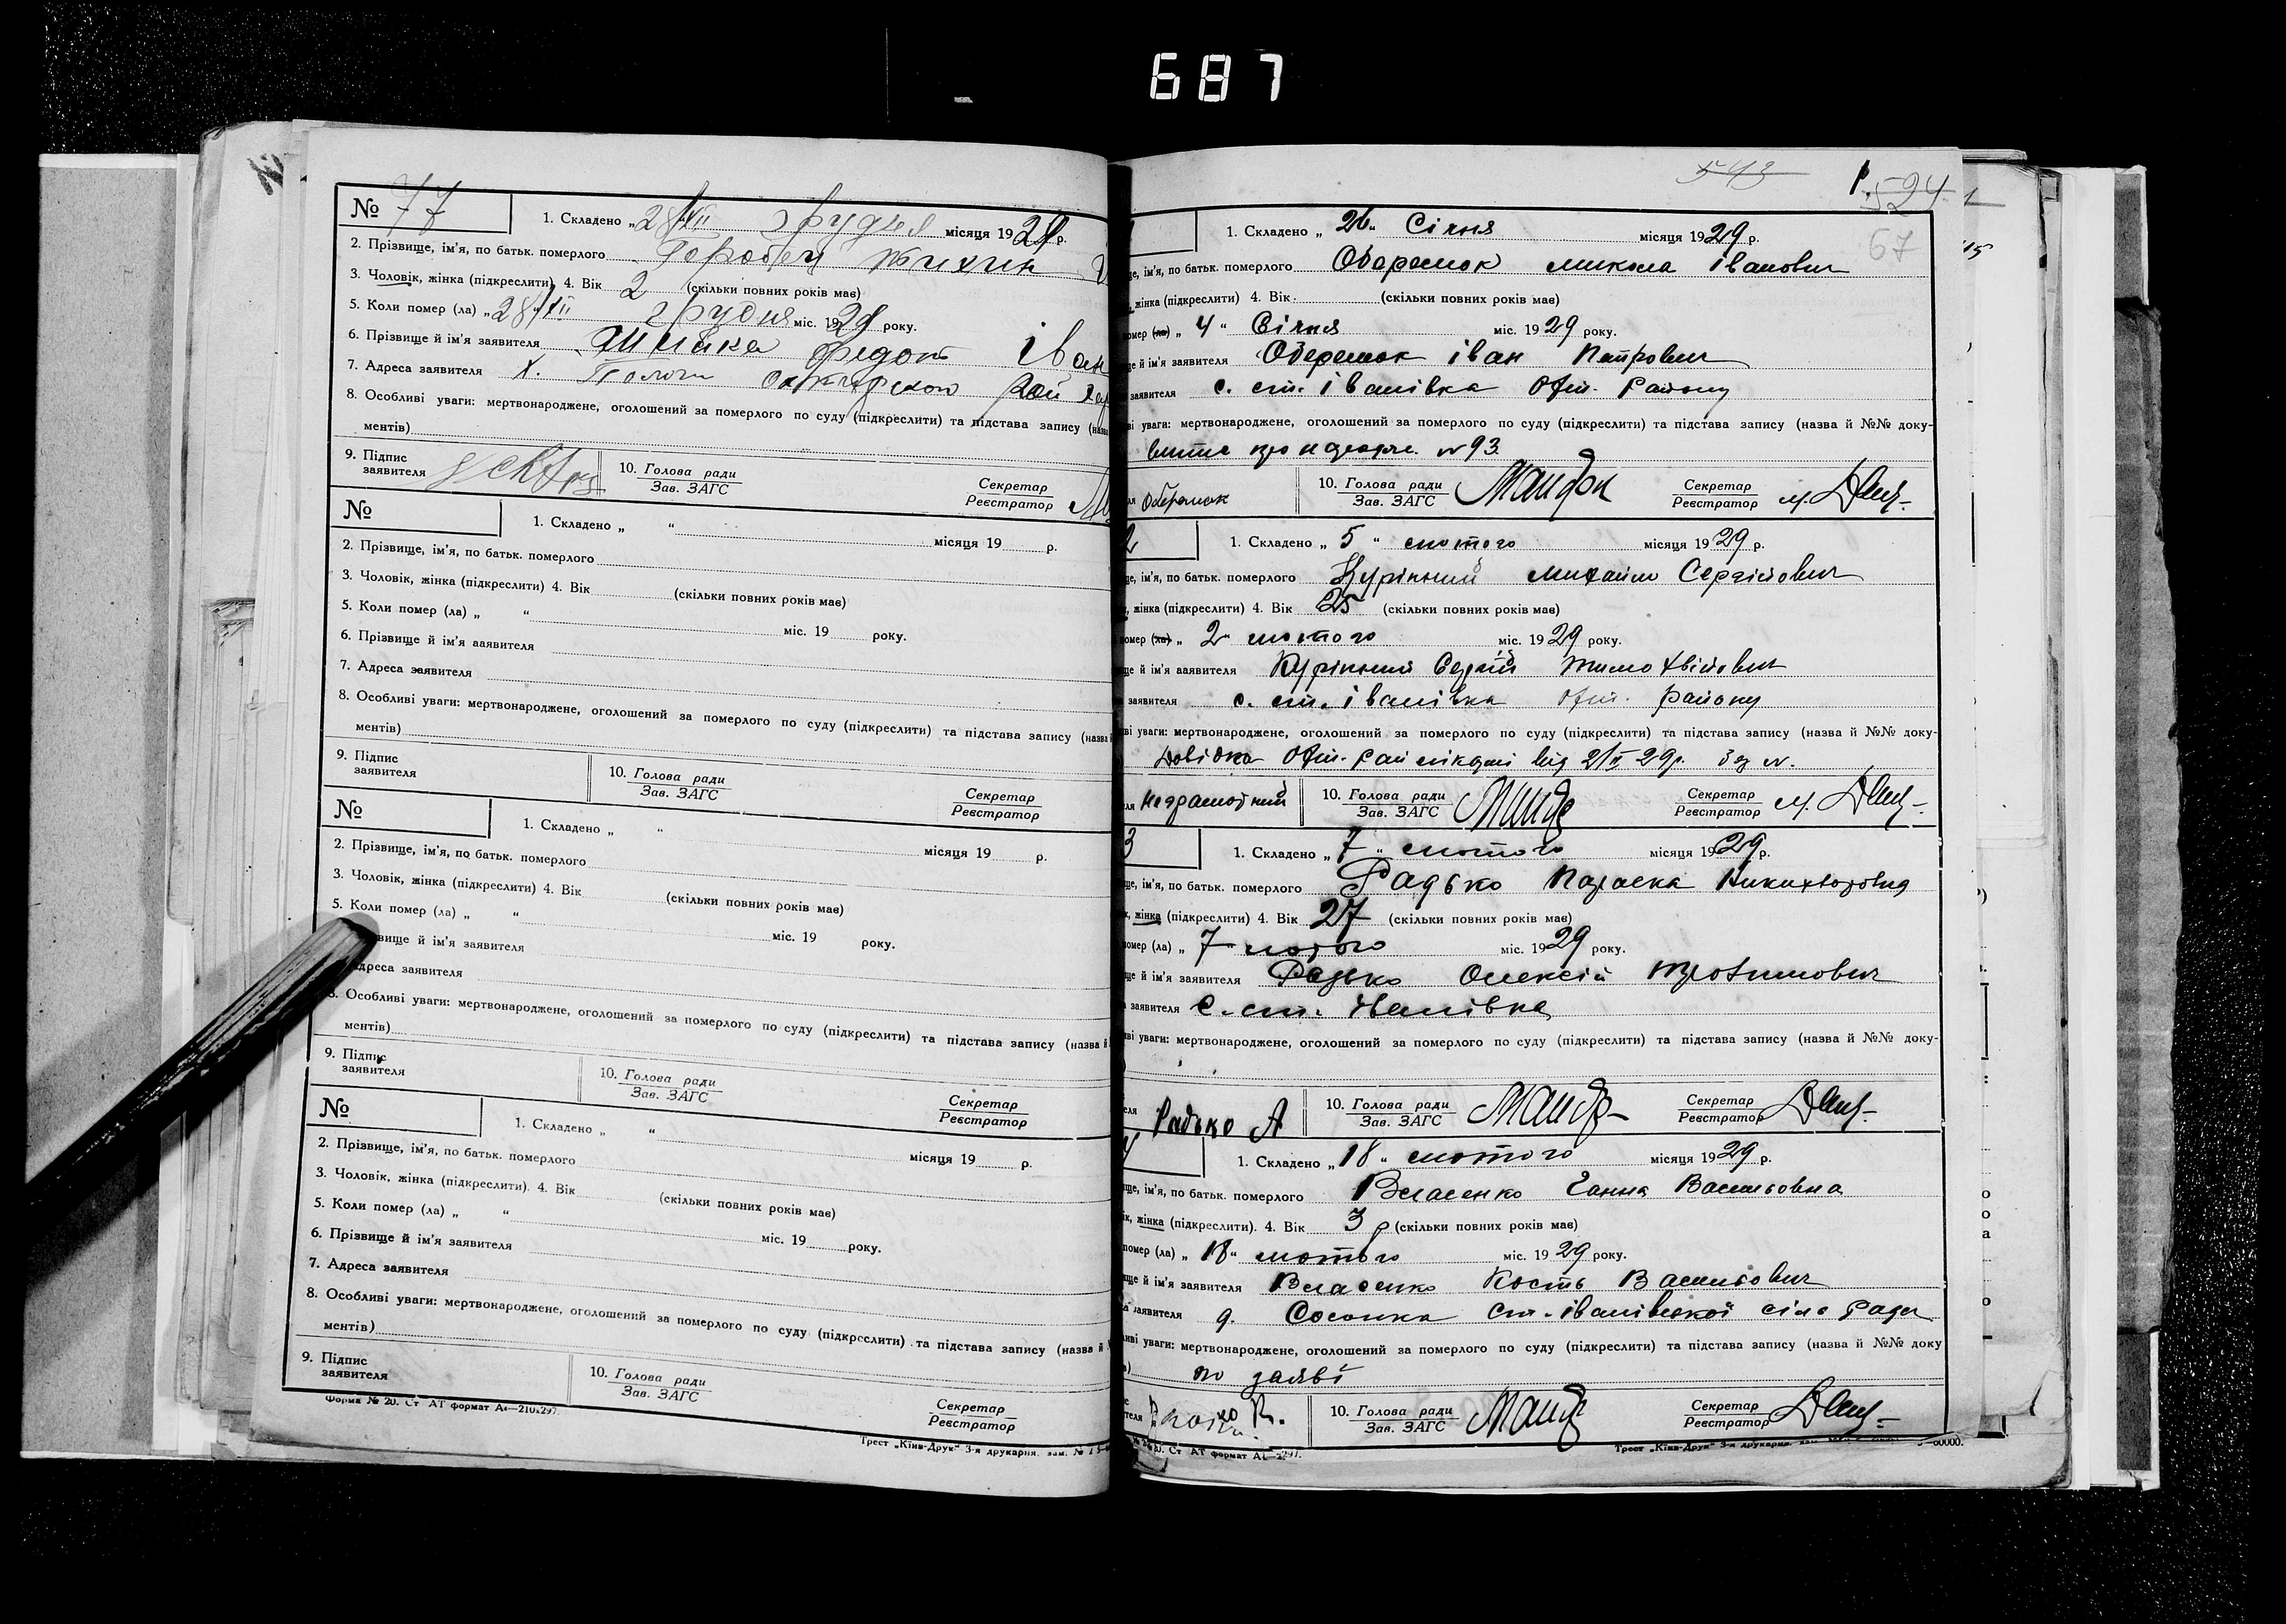 687
№ 77
1. Складено „28/XII грудня місяця 1929 р.
2. Прізвище, ім'я, по батьк. померлого Горобец Тихин
3. Чоловік, жінка (підкреслити) 4. Вік 2 (скільки повних років має)
5. Коли помер (ла) „28/XII грудня міс. 1929 року.
6. Прізвище й ім'я заявителя Федот Іван
7. Адреса заявителя х. Пологи рай
8. Особливі уваги: мертвонароджене, оголошений за померлого по суду (підкреслити) та підстава запису (назва
ментів)
9. Підпис заявителя
10. Голова ради Зав. ЗАГС
Секретар Реєстратор
№
1. Складено „ “ місяця 19 р.
2. Прізвище, ім'я, по батьк. померлого
3. Чоловік, жінка (підкреслити) 4. Вік (скільки повних років має)
5. Коли помер (ла) „ “ міс. 19 року.
6. Прізвище й ім'я заявителя
7. Адреса заявителя
8. Особливі уваги: мертвонароджене, оголошений за померлого по суду (підкреслити) та підстава запису (назва й
ментів)
9. Підпис заявителя
10. Голова ради Зав. ЗАГС
Секретар Реєстратор
№
1. Складено „ “ місяця 19 р.
2. Прізвище, ім'я, по батьк. померлого
3. Чоловік, жінка (підкреслити) 4. Вік (скільки повних років має)
5. Коли помер (ла) „ “ міс. 19 року.
вище й ім'я заявителя
дреса заявителя
8. Особливі уваги: мертвонароджене, оголошений за померлого по суду (підкреслити) та підстава запису (назва й
ментів)
9. Підпис заявителя
10. Голова ради Зав. ЗАГС
Секретар Реєстратор
№
1. Складено „ “ місяця 19 р.
2. Прізвище, ім'я, по батьк. померлого
3. Чоловік, жінка (підкреслити). 4. Вік (скільки повних років має)
5. Коли помер (ла) „ “ міс. 19 року.
6. Прізвище й ім'я заявителя
7. Адреса заявителя
8. Особливі уваги: мертвонароджене, оголошений за померлого по суду (підкреслити) та підстава запису (назва й
ментів)
9. Підпис заявителя
10. Голова ради Зав. ЗАГС
Секретар Реєстратор
Форма № 20. Ст АТ формат А4—210x297.
Трест „Київ-Друк“ 3-я друкарня. зам. №
543 1. 524
67
1. Складено „ 26 “ Січня місяця 1929 р.
ще, ім'я, по батьк. померлого Оберемок микола іванович
жінка (підкреслити) 4. Вік (скільки повних років має)
помер (ла) „ 4 “ Січня міс. 1929 року.
ще й ім'я заявителя Оберемок іван Петрович
заявителя с. ст. іванівка Охт. Району
ві уваги: мертвонароджене, оголошений за померлого по суду (підкреслити) та підстава запису (назва й №№ доку-
витяг про народж. №93
Оберемок
10. Голова ради Зав. ЗАГС
Секретар Реєстратор
2
1. Складено „ 5 “ лютого місяця 1929 р.
ще, ім'я, по батьк. померлого Курінний Михайло Сергійович
жінка (підкреслити) 4. Вік 25 (скільки повних років має)
помер (ла) „ 2 “ лютого міс. 1929 року.
ще й ім'я заявителя Курінний Сергій Тимохвійович
заявителя с. ст. іванівка Охт. району
ві уваги: мертвонароджене, оголошений за померлого по суду (підкреслити) та підстава запису (назва й №№ доку-
Довідка Охт. Рай лікарні від 2/II 29р. за №.
неграмотний
10. Голова ради Зав. ЗАГС
Секретар Реєстратор
3
1. Складено „ 7 “ лютого місяця 1929 р.
ще, ім'я, по батьк. померлого Радько Параска Никихворовна
жінка (підкреслити) 4. Вік 27 (скільки повних років має)
помер (ла) „ 7 “ лютого міс. 1929 року.
ще й ім'я заявителя Радько Олексій Трохимович
заявителя с. ст. Іванівка
ві уваги: мертвонароджене, оголошений за померлого по суду (підкреслити) та підстава запису (назва й №№ доку-
Радько А
10. Голова ради Зав. ЗАГС
Секретар Реєстратор
4
1. Складено „ 18 “ лютого місяця 1929 р.
ще, ім'я, по батьк. померлого Власенко Ганна Васильовна
жінка (підкреслити). 4. Вік 3 р (скільки повних років має)
помер (ла) „ 18 “ лютого міс. 1929 року.
ще й ім'я заявителя Власенко Кость Васильович
заявителя д. Сосонка Ст. іванівської сіль Ради
ві уваги: мертвонароджене, оголошений за померлого по суду (підкреслити) та підстава запису (назва й №№ доку
по заяві
10. Голова ради Зав. ЗАГС
Секретар Реєстратор
Ст АТ формат А4—297.
Трест „Київ-Друк“ 3-я друкарня. зам. 60000.